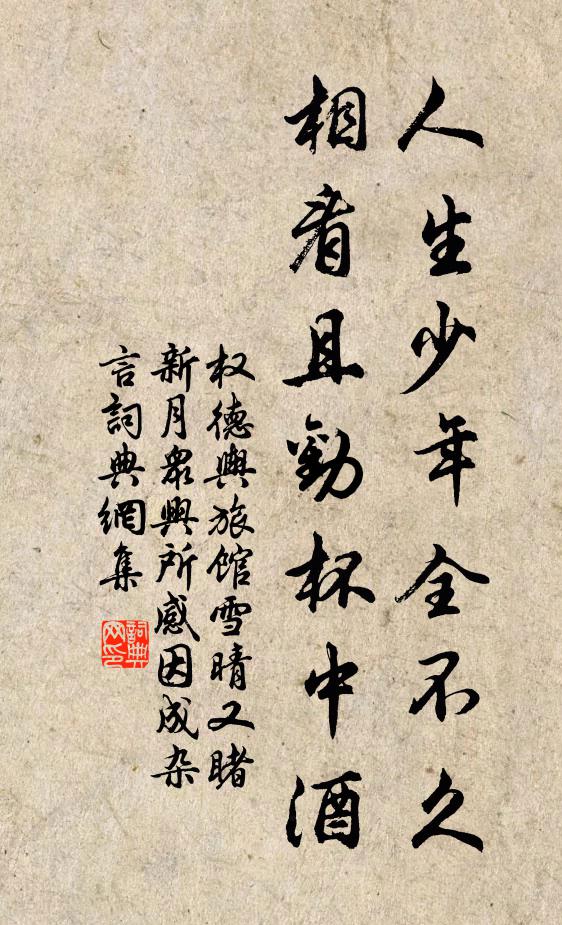 人生少年全不久
相看且勸杯中酒
权德輿旅馆雪晴又睹
新月眾興所感因成杂
言詞典網集
詞典网印